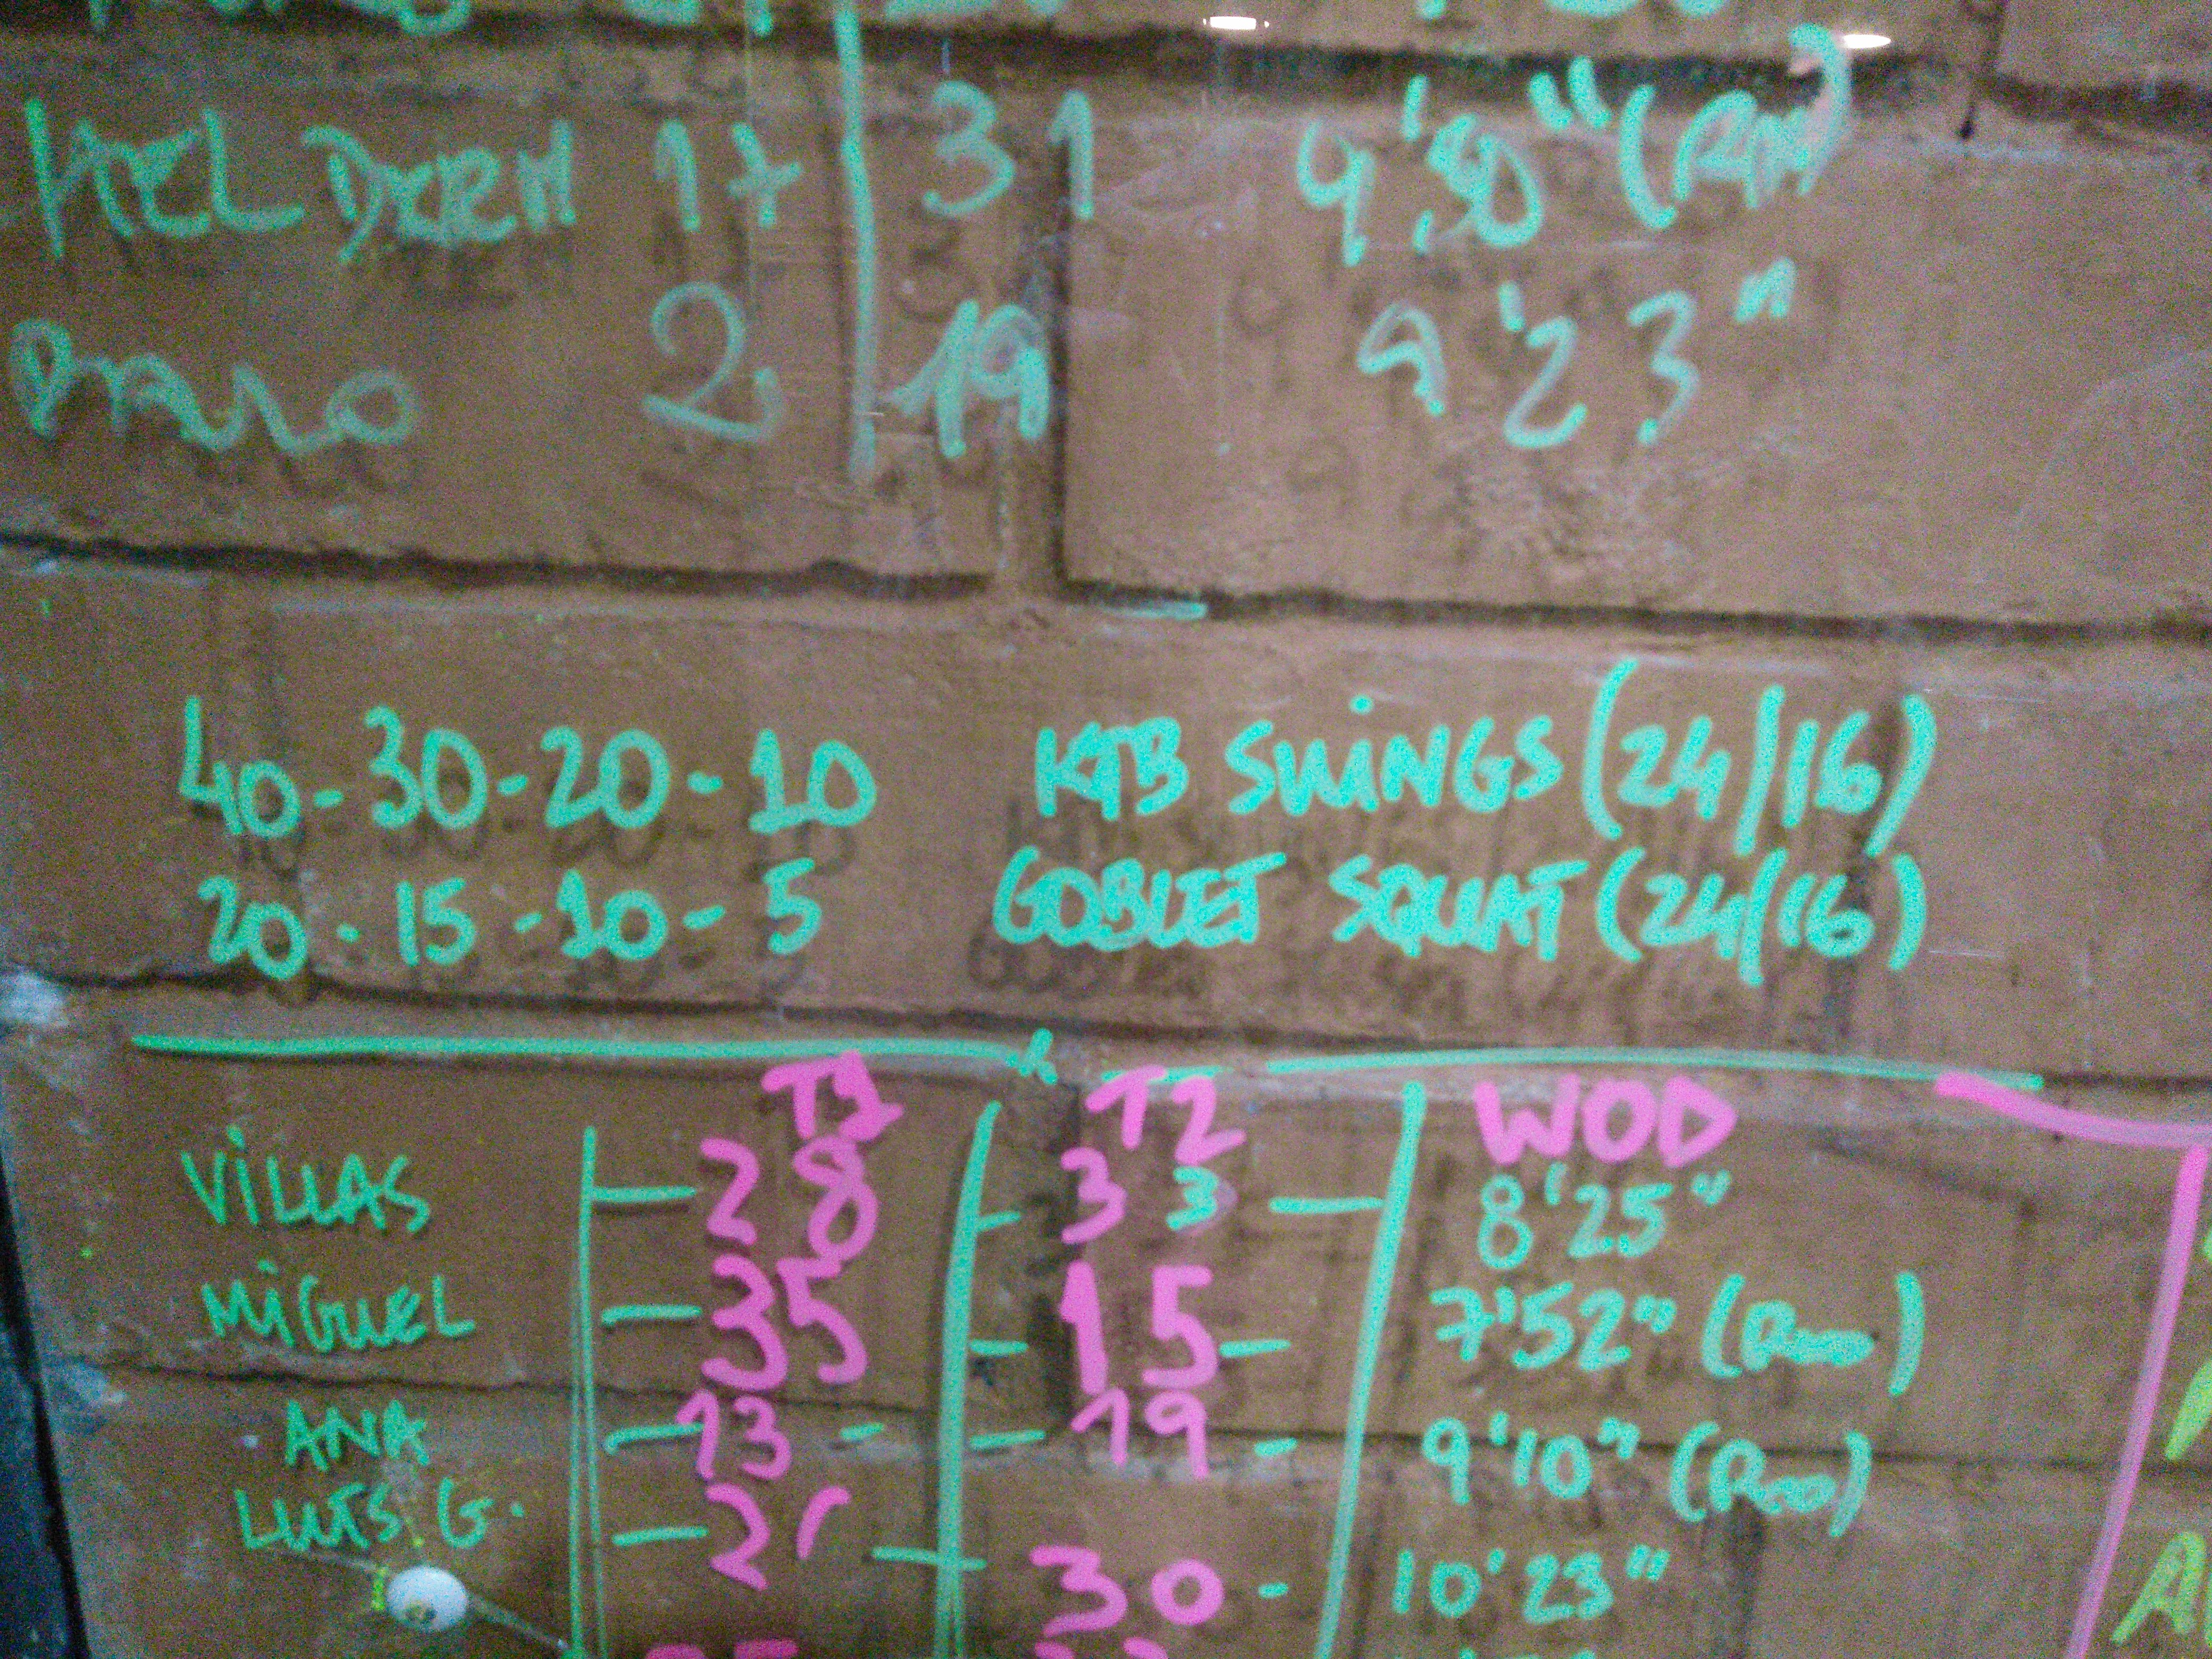 17 31 9'50" (Rx)
2 19 9'23"
40-30-20-10 KTB SWINGS (24/16)
20-15-10-5 GOBLET SQUAT (24/16)
T1 T2 WOD
VILLAS 28 33 8'25"
MIGUEL 35 15 7'52"
ANA 13 19 9'10"
LUIS G. 30 10'23"